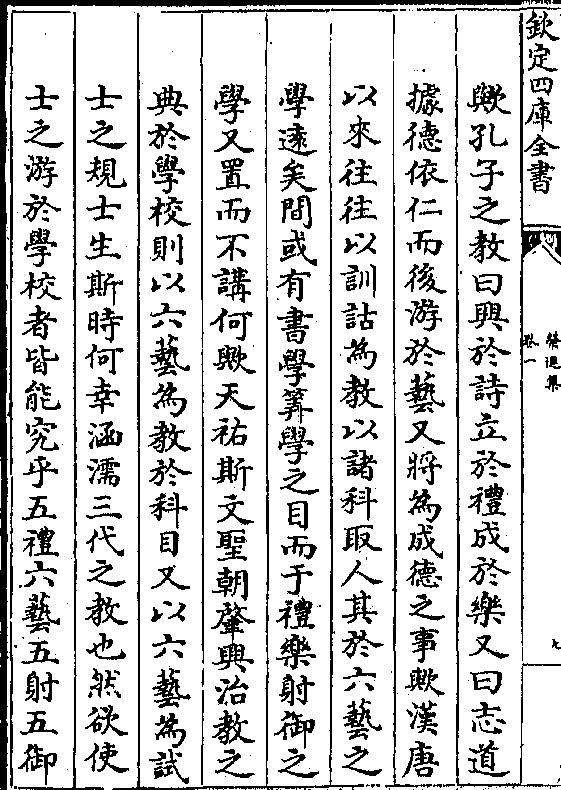 欽定四庫全書
卷一
歟孔子之教曰興於詩立於禮成於樂又曰志道
據德依仁而後游於藝又將為成德之事歟漢唐
以來往往以訓詁為教以諸科取人其於六藝之
學逺矣間或有書學筭學之目而于禮樂射御之
學又置而不講何歟天祐斯文聖朝肇興治教之
典於學校則以六藝為教於科目又以六藝為試
士之規士生斯時何幸涵濡三代之教也然欲使
士之游於學校者皆能究乎五禮六藝五射五御